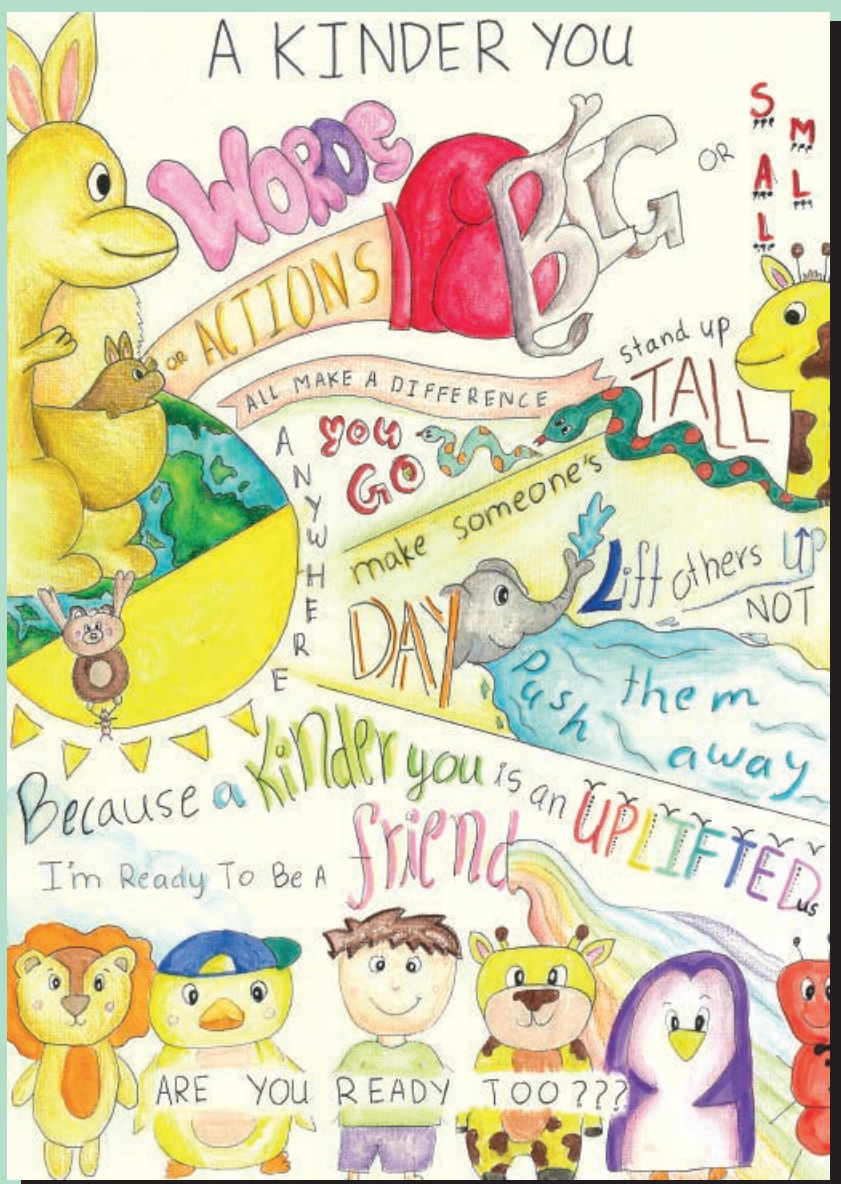 A KINDER YOU
WORDS
OR ACTIONS
BIG
OR
SMALL
ALL MAKE A DIFFERENCE
ANYWHERE
YOU
GO
stand up
TALL
make someone's
DAY
Lift others UP
NOT
push them
away
Because a kinder you is an UPLIFTED us
I'm Ready To Be A friend
ARE YOU READY TOO???